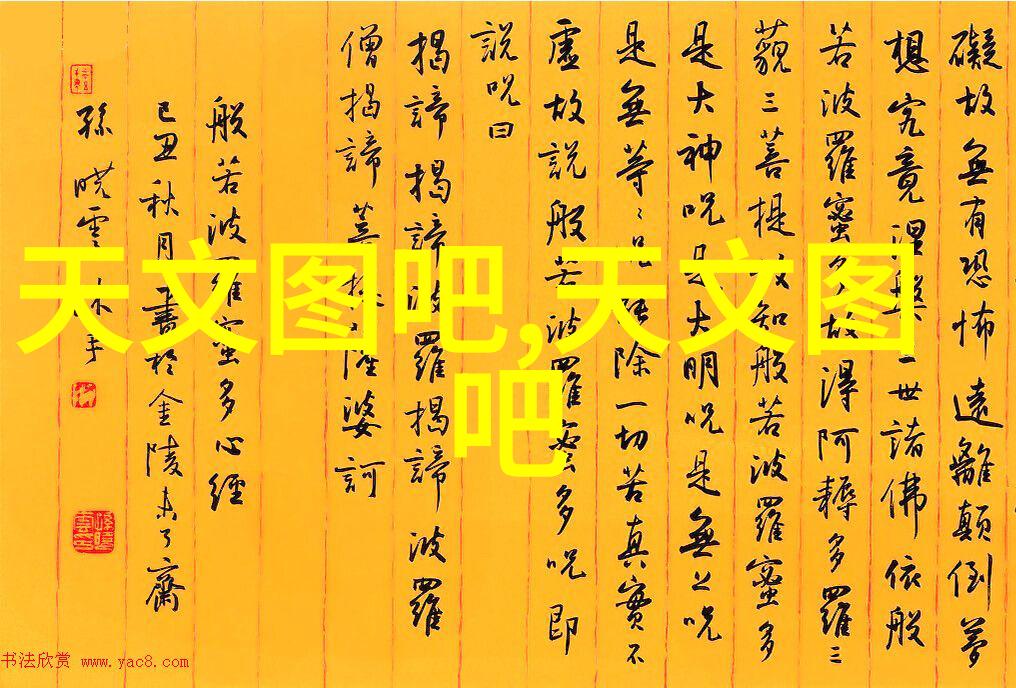 礙故無有恐怖遠離顛倒夢
想究竟涅槃三世諸佛依般
若波羅蜜多故得阿耨多羅三
藐三菩提故知般若波羅蜜多
是大神呪是大明呪是無上呪
是無等〻呪能除一切苦真實不
虛故說般若波羅蜜多呪即
說呪曰
揭諦揭諦波羅揭諦波羅
僧揭諦菩提薩婆訶
般若波羅蜜多心經
己丑秋月書於金陵未了齋
孫曉雲沐手
天文图吧,天文图
吧
书法欣赏 www.yac8.com